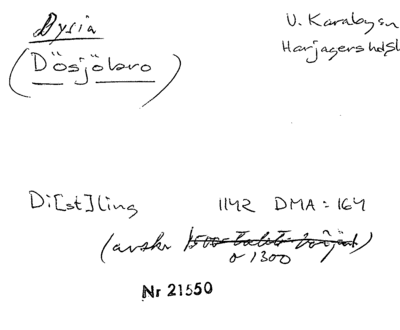 Dysia
V. Karaby sn
(Dösjöbro)
Harjagers hdsl
Di[st]ling 1142 DMA = 164
(avskr 1500-talets början)
o 1300
Nr 21550